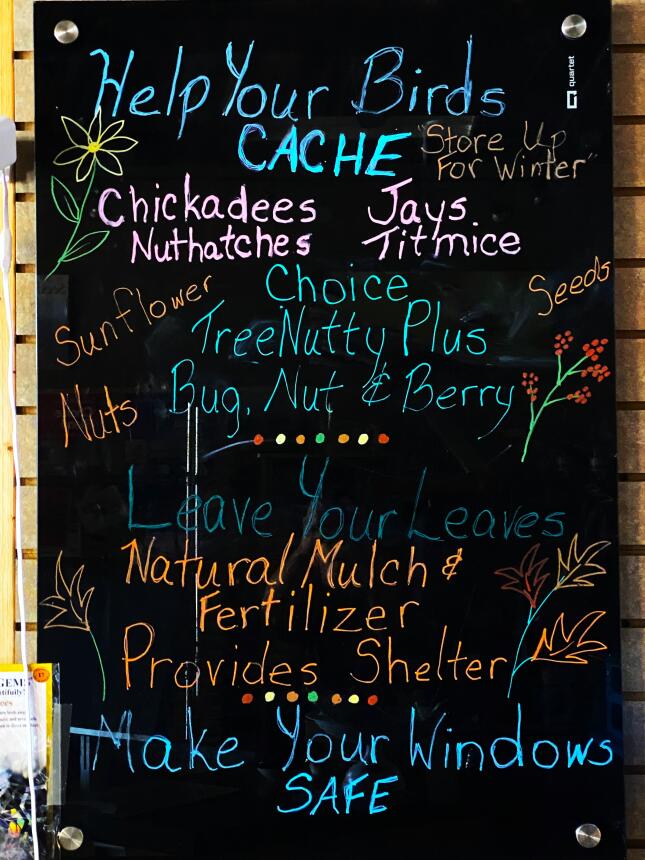 quartet
Help Your Birds
CACHE "Store Up
For Winter"
Chickadees Jays
Nuthatches Titmice
Sunflower Choice Seeds
TreeNutty Plus
Nuts Bug, Nut & Berry
Leave Your Leaves
Natural Mulch &
Fertilizer
Provides Shelter
Make Your Windows
SAFE
GEMS